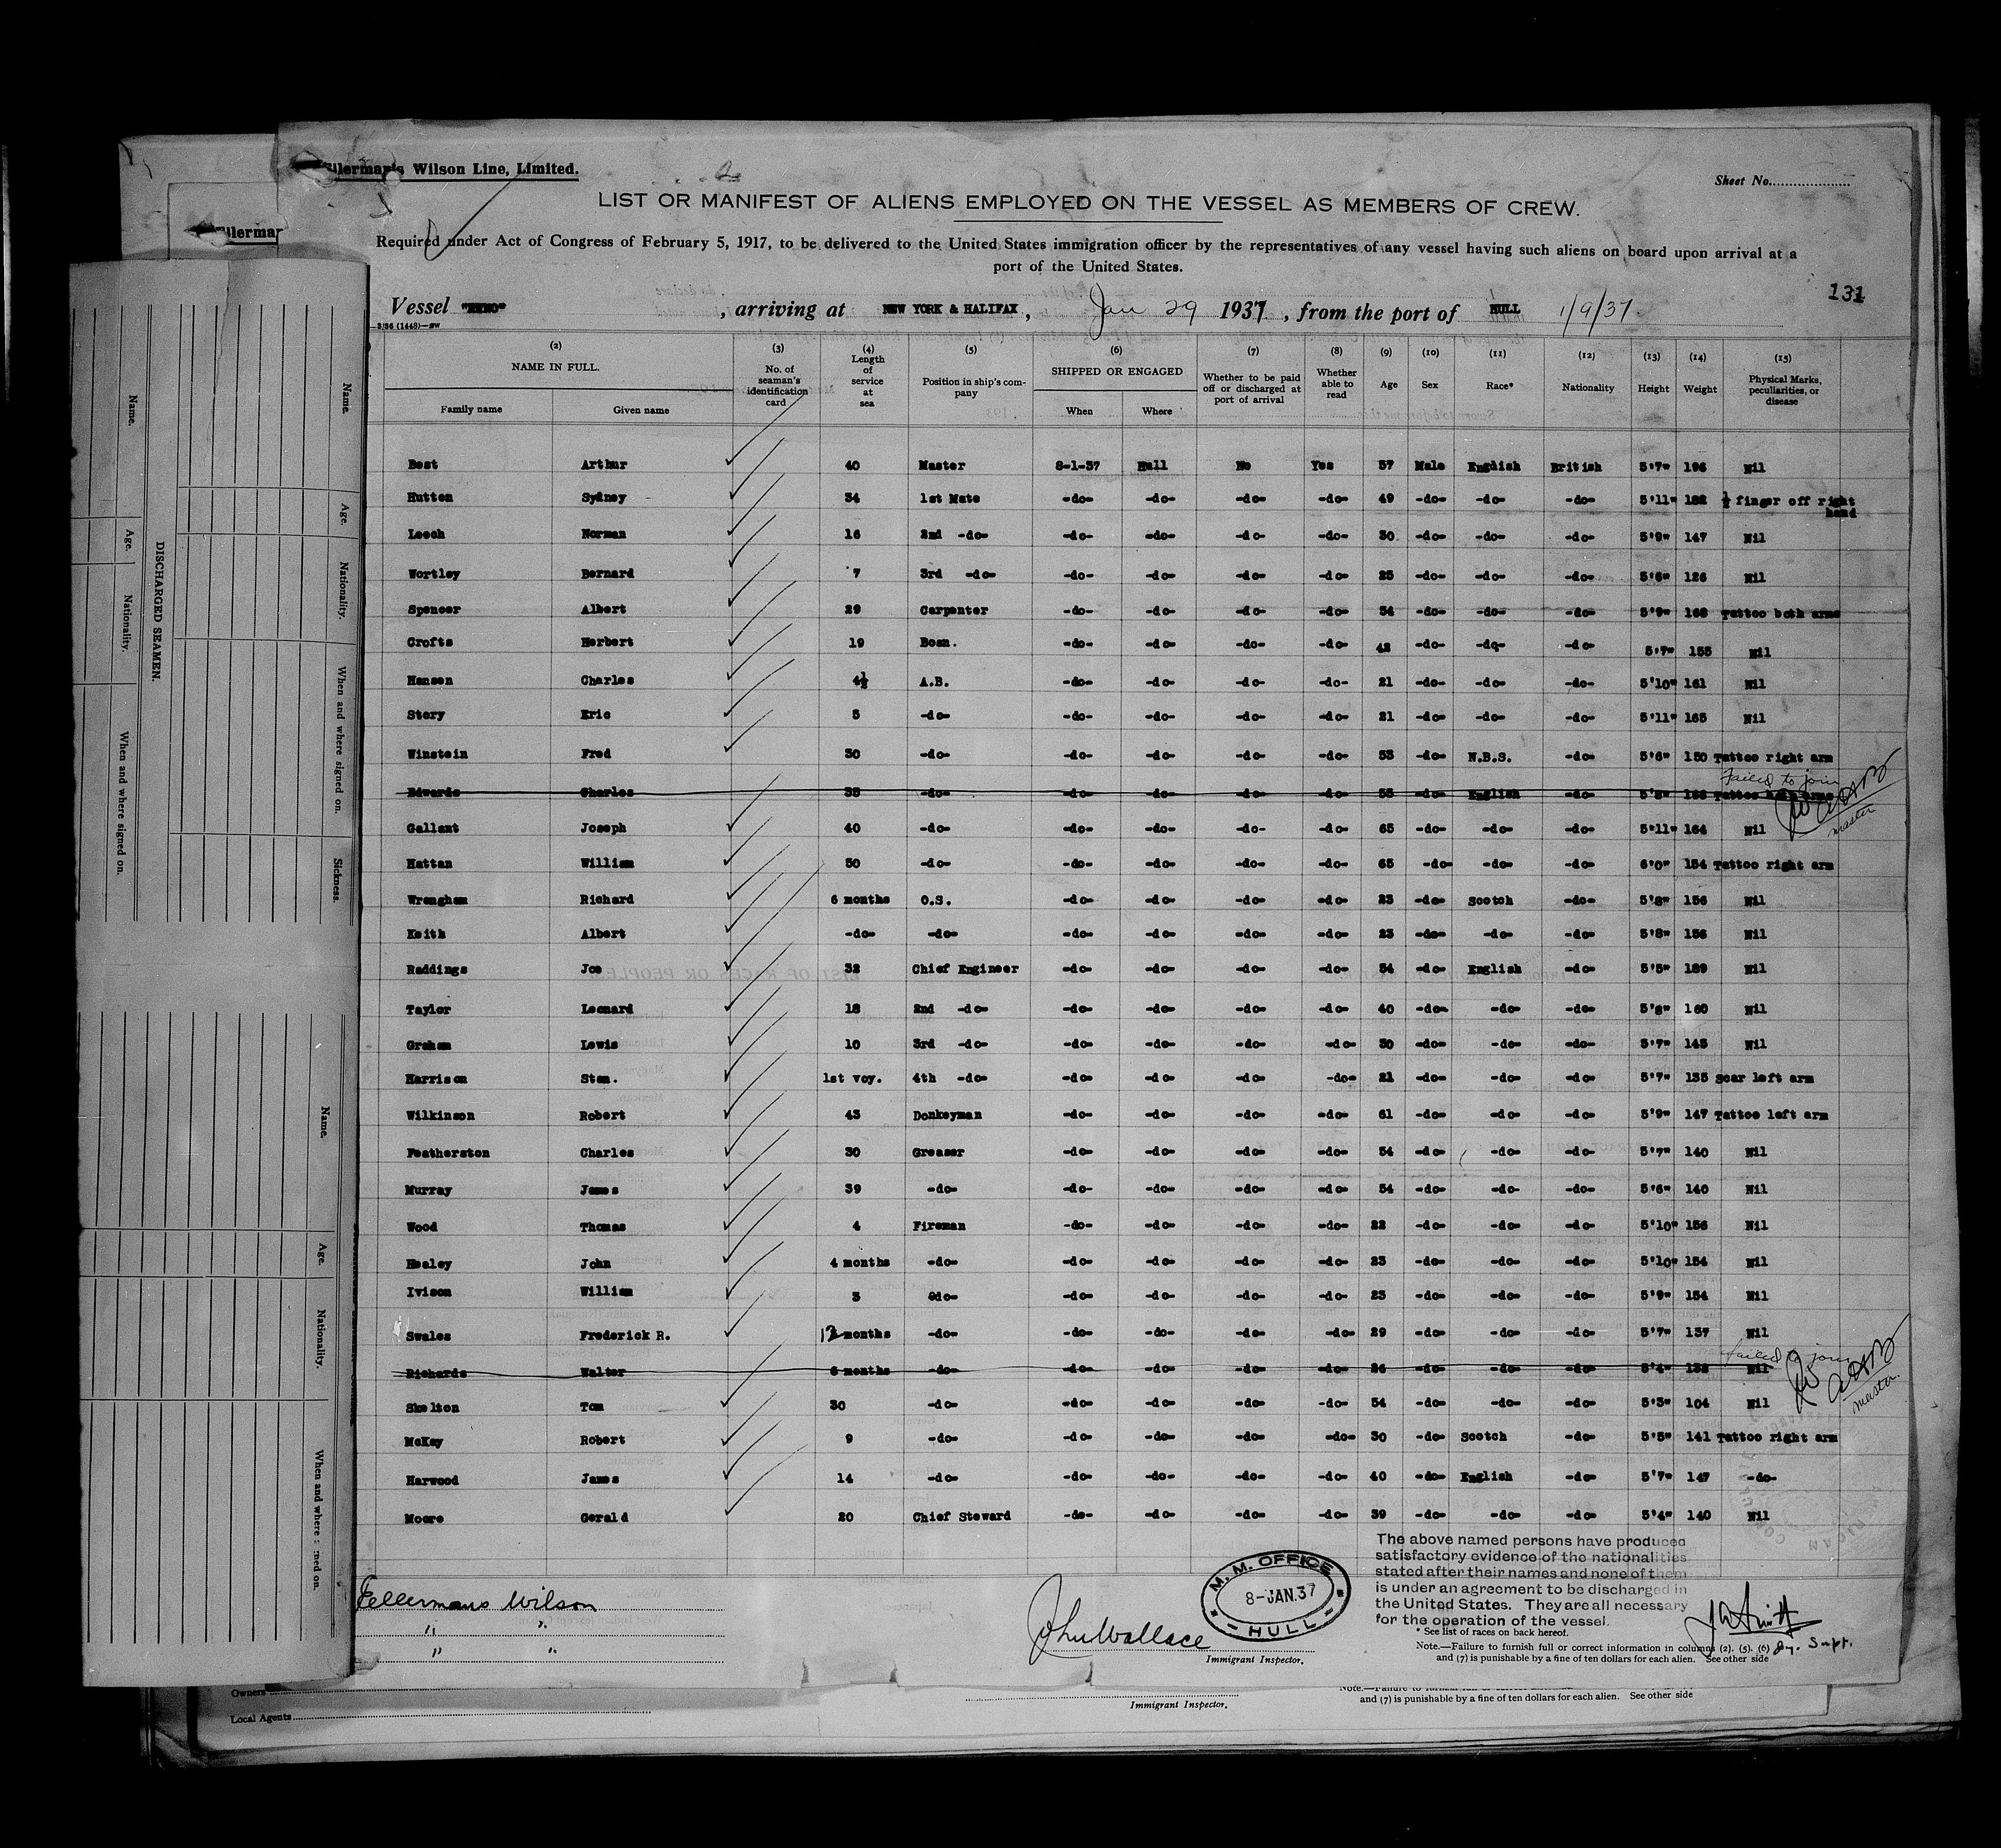 Wilson Line, Limited.
2
Sheet No.
LIST OR MANIFEST OF ALIENS EMPLOYED ON THE VESSEL AS MEMBERS OF CREW.
Required under Act of Congress of February 5, 1917, to be delivered to the United States immigration officer by the representatives of any vessel having such aliens on board upon arrival at a
port of the United States.
131
Vessel , arriving at NEW YORK & HALIFAX, Jan 29 1937, from the port of HULL 1/9/37.
3/36 (1448)
(2) (3) (4) (5) (6) (7) (8) (9) (10) (11) (12) (13) (14) (15)
NAME IN FULL. No. of seaman's identification card Length of service at sea Position in ship's company SHIPPED OR ENGAGED Whether to be paid off or discharged at port of arrival Whether able to read Age Sex Race* Nationality Height Weight Physical Marks, peculiarities, or disease
Family name Given name When Where
Best Arthur 40 Master 8-1-37 Hull No Yes 57 Male English British 5'7" 196 Nil
Hutton Sydney - 34 1st Mate -do- -do- -do- -do- 49 -do- -do- -do- 5'11" 182 ½ finger off right hand
Leech Norman 16 2nd -do- -do- -do- -do- -do- 30 -do- -do- -do- 5'9" 147 Nil
Wortley Bernard 7 3rd -do- -do- -do- -do- -do- 25 -do- -do- -do- 5'6" 126 Nil
Spencer Albert 29 Carpenter -do- -do- -do- -do- 54 -do- -do- -do- 5'9" 168 Tattoo both arms
Crofts Herbert 19 Bosn. -do- -do- -do- -do- 42 -do- -do- -do- 5'7" 155 Nil
Hansen Charles 4½ A.B. -do- -do- -do- -do- 21 -do- -do- -do- 5'10" 161 Nil
Story Eric 5 -do- -do- -do- -do- -do- 21 -do- -do- -do- 5'11" 165 Nil
Winstein Fred 30 -do- -do- -do- -do- -do- 53 -do- N.B.S. -do- 5'6" 150 Tattoo right arm
Failed to join
Edwards Charles 35 -do- -do- -do- -do- -do- 55 -do- English -do- 5'8" Tattoo both arms
master
Gallant Joseph 40 -do- -do- -do- -do- -do- 65 -do- -do- -do- 5'11" 164 Nil
Hattan William 50 -do- -do- -do- -do- -do- 65 -do- -do- -do- 6'0" 154 Tattoo right arm
Wrengham Richard 6 months O.S. -do- -do- -do- -do- 23 -do- Scotch -do- 5'8" 156 Nil
Keith Albert -do- -do- -do- -do- -do- -do- 23 -do- -do- -do- 5'8" 156 Nil
Raddings Joe 32 Chief Engineer -do- -do- -do- -do- 54 -do- English -do- 5'5" 189 Nil
Taylor Leonard 18 2nd -do- -do- -do- -do- -do- 40 -do- -do- -do- 5'8" 160 Nil
Graham Lewis 10 3rd -do- -do- -do- -do- -do- 30 -do- -do- -do- 5'7" 145 Nil
Harrison Stan. 1st voy. 4th -do- -do- -do- -do- -do- 21 -do- -do- -do- 5'7" 135 Scar left arm
Wilkinson Robert 43 Donkeyman -do- -do- -do- -do- 61 -do- -do- -do- 5'9" 147 Tattoo left arm
Featherston Charles 30 Greaser -do- -do- -do- -do- 54 -do- -do- -do- 5'7" 140 Nil
Murray James 39 -do- -do- -do- -do- -do- 54 -do- -do- -do- 5'6" 140 Nil
Wood Thomas 4 Fireman -do- -do- -do- -do- 22 -do- -do- -do- 5'10" 156 Nil
Healey John 4 months -do- -do- -do- -do- -do- 23 -do- -do- -do- 5'10" 154 Nil
Ivison William 3 -do- -do- -do- -do- -do- 23 -do- -do- -do- 5'9" 154 Nil
Swales Frederick R. 12 months -do- -do- -do- -do- -do- 29 -do- -do- -do- 5'7" 137 Nil
failed to join
Richards Walter 6 months -do- -do- -do- -do- -do- 26 -do- -do- -do- 5'4" 132 Nil
master.
Skelton Tom 30 -do- -do- -do- -do- -do- 54 -do- -do- -do- 5'3" 104 Nil
McKay Robert 9 -do- -do- -do- -do- -do- 30 -do- Scotch -do- 5'5" 141 Tattoo right arm
Harwood James 14 -do- -do- -do- -do- -do- 40 -do- English -do- 5'7" 147 -do-
Moore Gerald 20 Chief Steward -do- -do- -do- -do- 39 -do- -do- -do- 5'4" 140 Nil
The above named persons have produced
satisfactory evidence of the nationalities
stated after their names and none of them
is under an agreement to be discharged in
the United States. They are all necessary
for the operation of the vessel.
M. M. OFFICE
8-JAN.37
HULL
Fellermans Wilson
" "
" "
John Wallace
Immigrant Inspector.
Dy. Supt.
* See list of races on back hereof.
Note.—Failure to furnish full or correct information in columns (2), (5), (6)
and (7) is punishable by a fine of ten dollars for each alien. See other side
Owners
Local Agents
Immigrant Inspector.
and (7) is punishable by a fine of ten dollars for each alien. See other side
DISCHARGED SEAMEN.
Name. Age. Nationality. When and where signed on.
Name. Age. Nationality. When and where signed on. Sickness.
Name. Age. Nationality. When and where signed on.